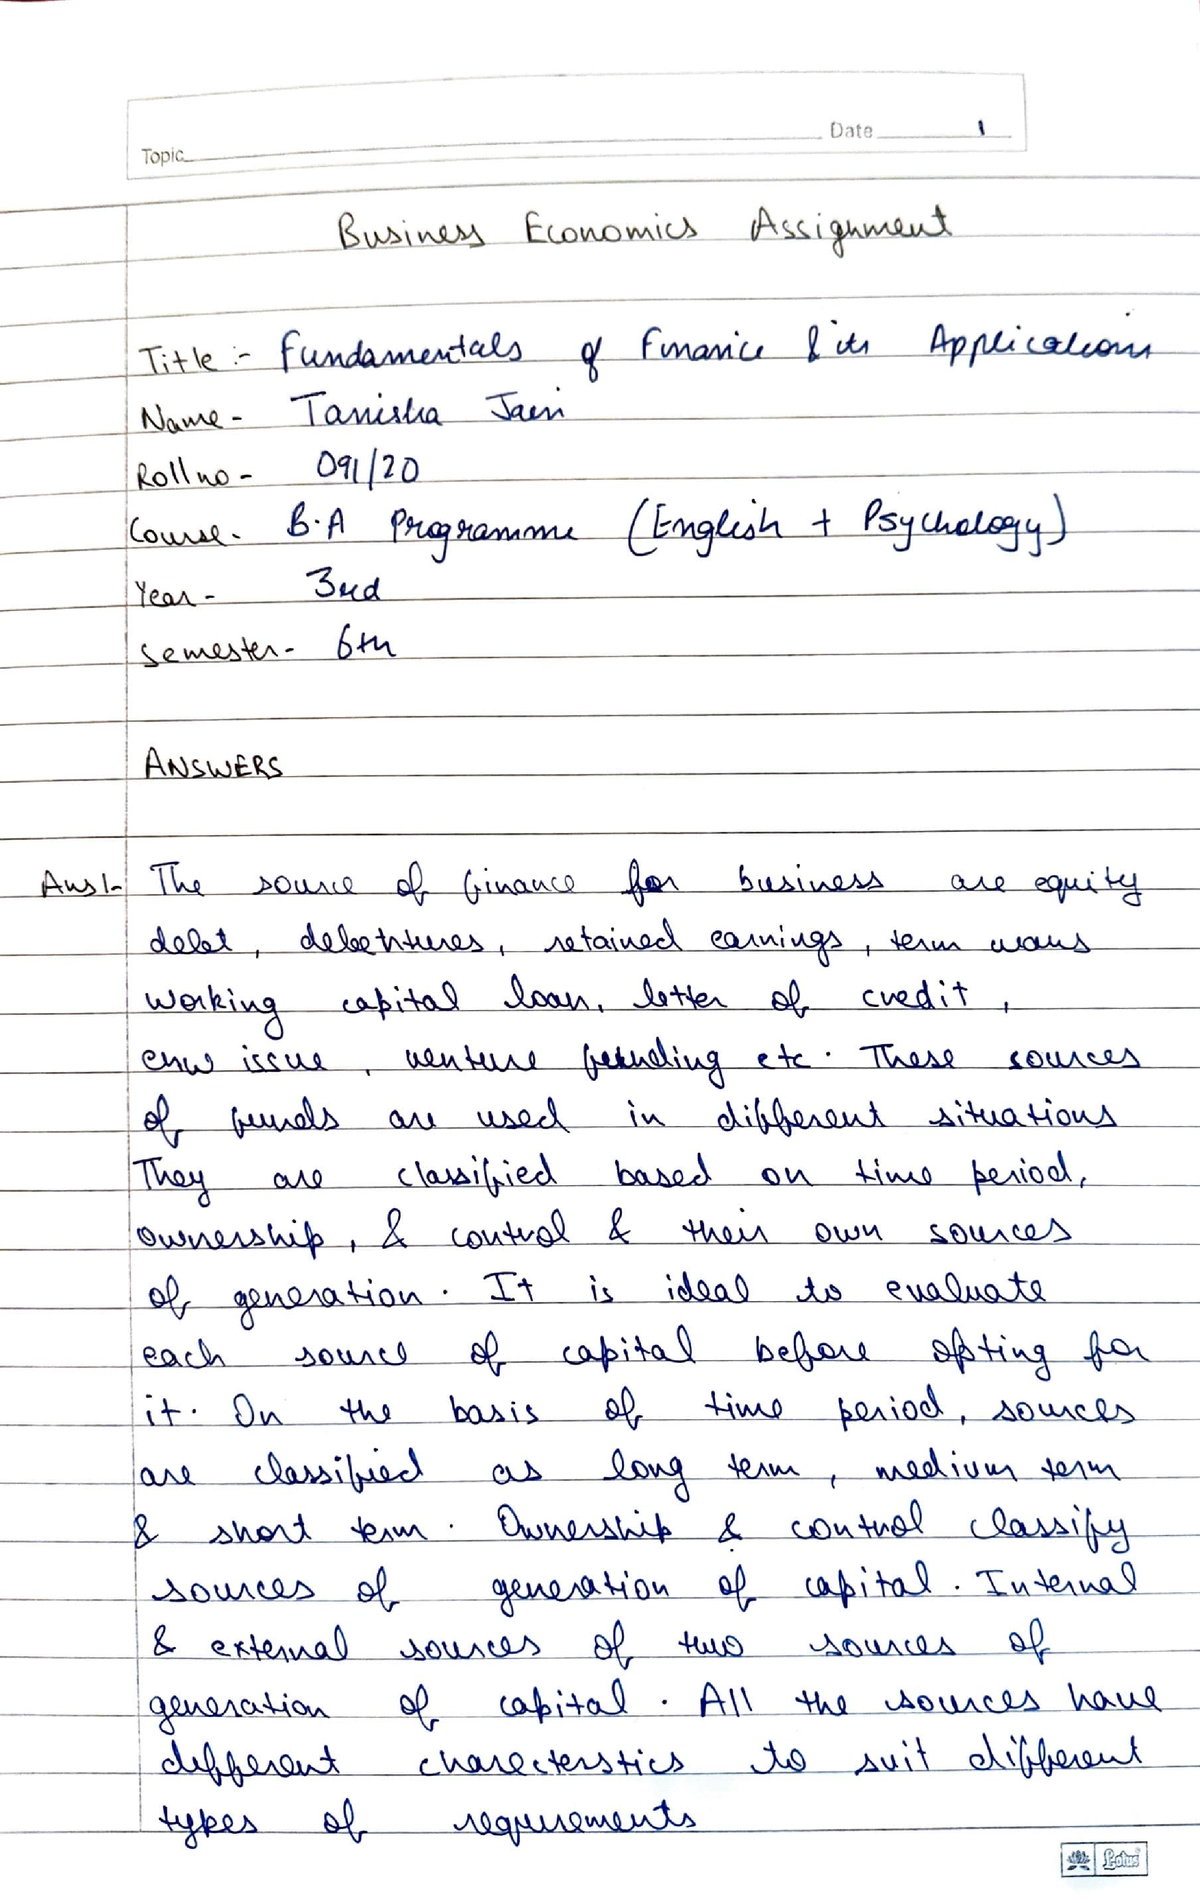 Topic
Date 1
Business Economics Assignment
Title :- Fundamentals of Finance & its Applications
Name - Tanisha Jain
Roll no - 091/20
Course - B.A Programme (English + Psychology)
Year - 3rd
Semester - 6th
ANSWERS
Ans1- The source of finance for business are equity
debt, debentures, retained earnings, term loans
working capital loan, letter of credit,
issue, venture funding etc. These sources
of funds are used in different situations
They are classified based on time period,
ownership, & control & their own sources
of generation. It is ideal to evaluate
each source of capital before opting for
it. On the basis of time period, sources
are classified as long term, medium term
& short term. Ownership & control classify
sources of generation of capital. Internal
& external sources of two sources of
generation of capital. All the sources have
different charecterstics to suit different
types of requirements
Lotus